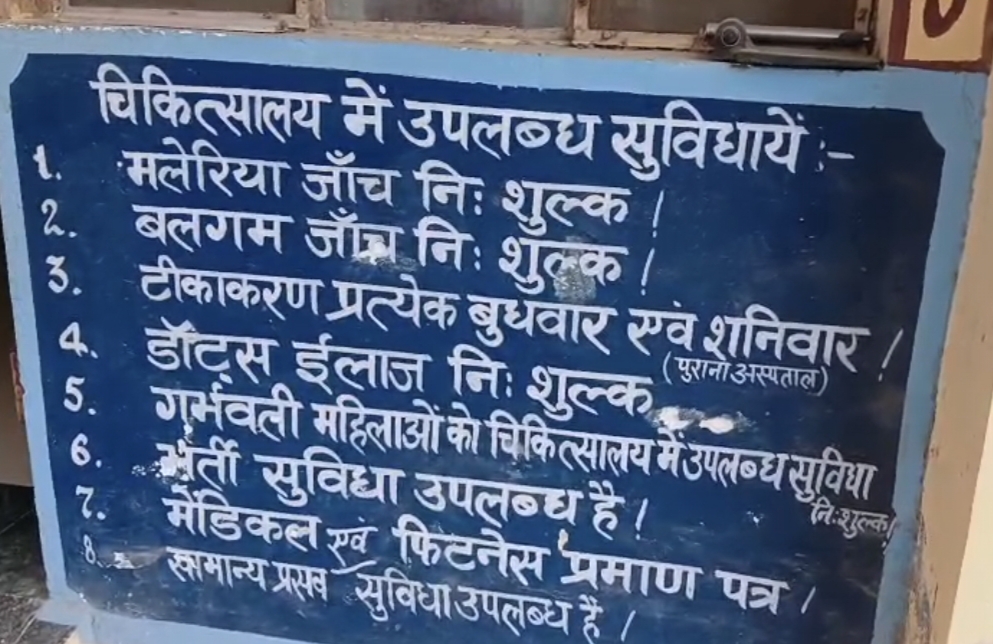 चिकित्सालय में उपलब्ध सुविधायें :-
1. मलेरिया जाँच निः शुल्क ।
2. बलगम जाँच निः शुल्क ।
3. टीकाकरण प्रत्येक बुधवार एवं शनिवार ।
(पुराना अस्पताल)
4. डॉट्स ईलाज निः शुल्क
5. गर्भवती महिलाओं को चिकित्सालय में उपलब्ध सुविधा
निःशुल्क।
6. भर्ती सुविधा उपलब्ध है ।
7. मेडिकल एवं फिटनेस प्रमाण पत्र ।
8. सामान्य प्रसव सुविधा उपलब्ध है ।